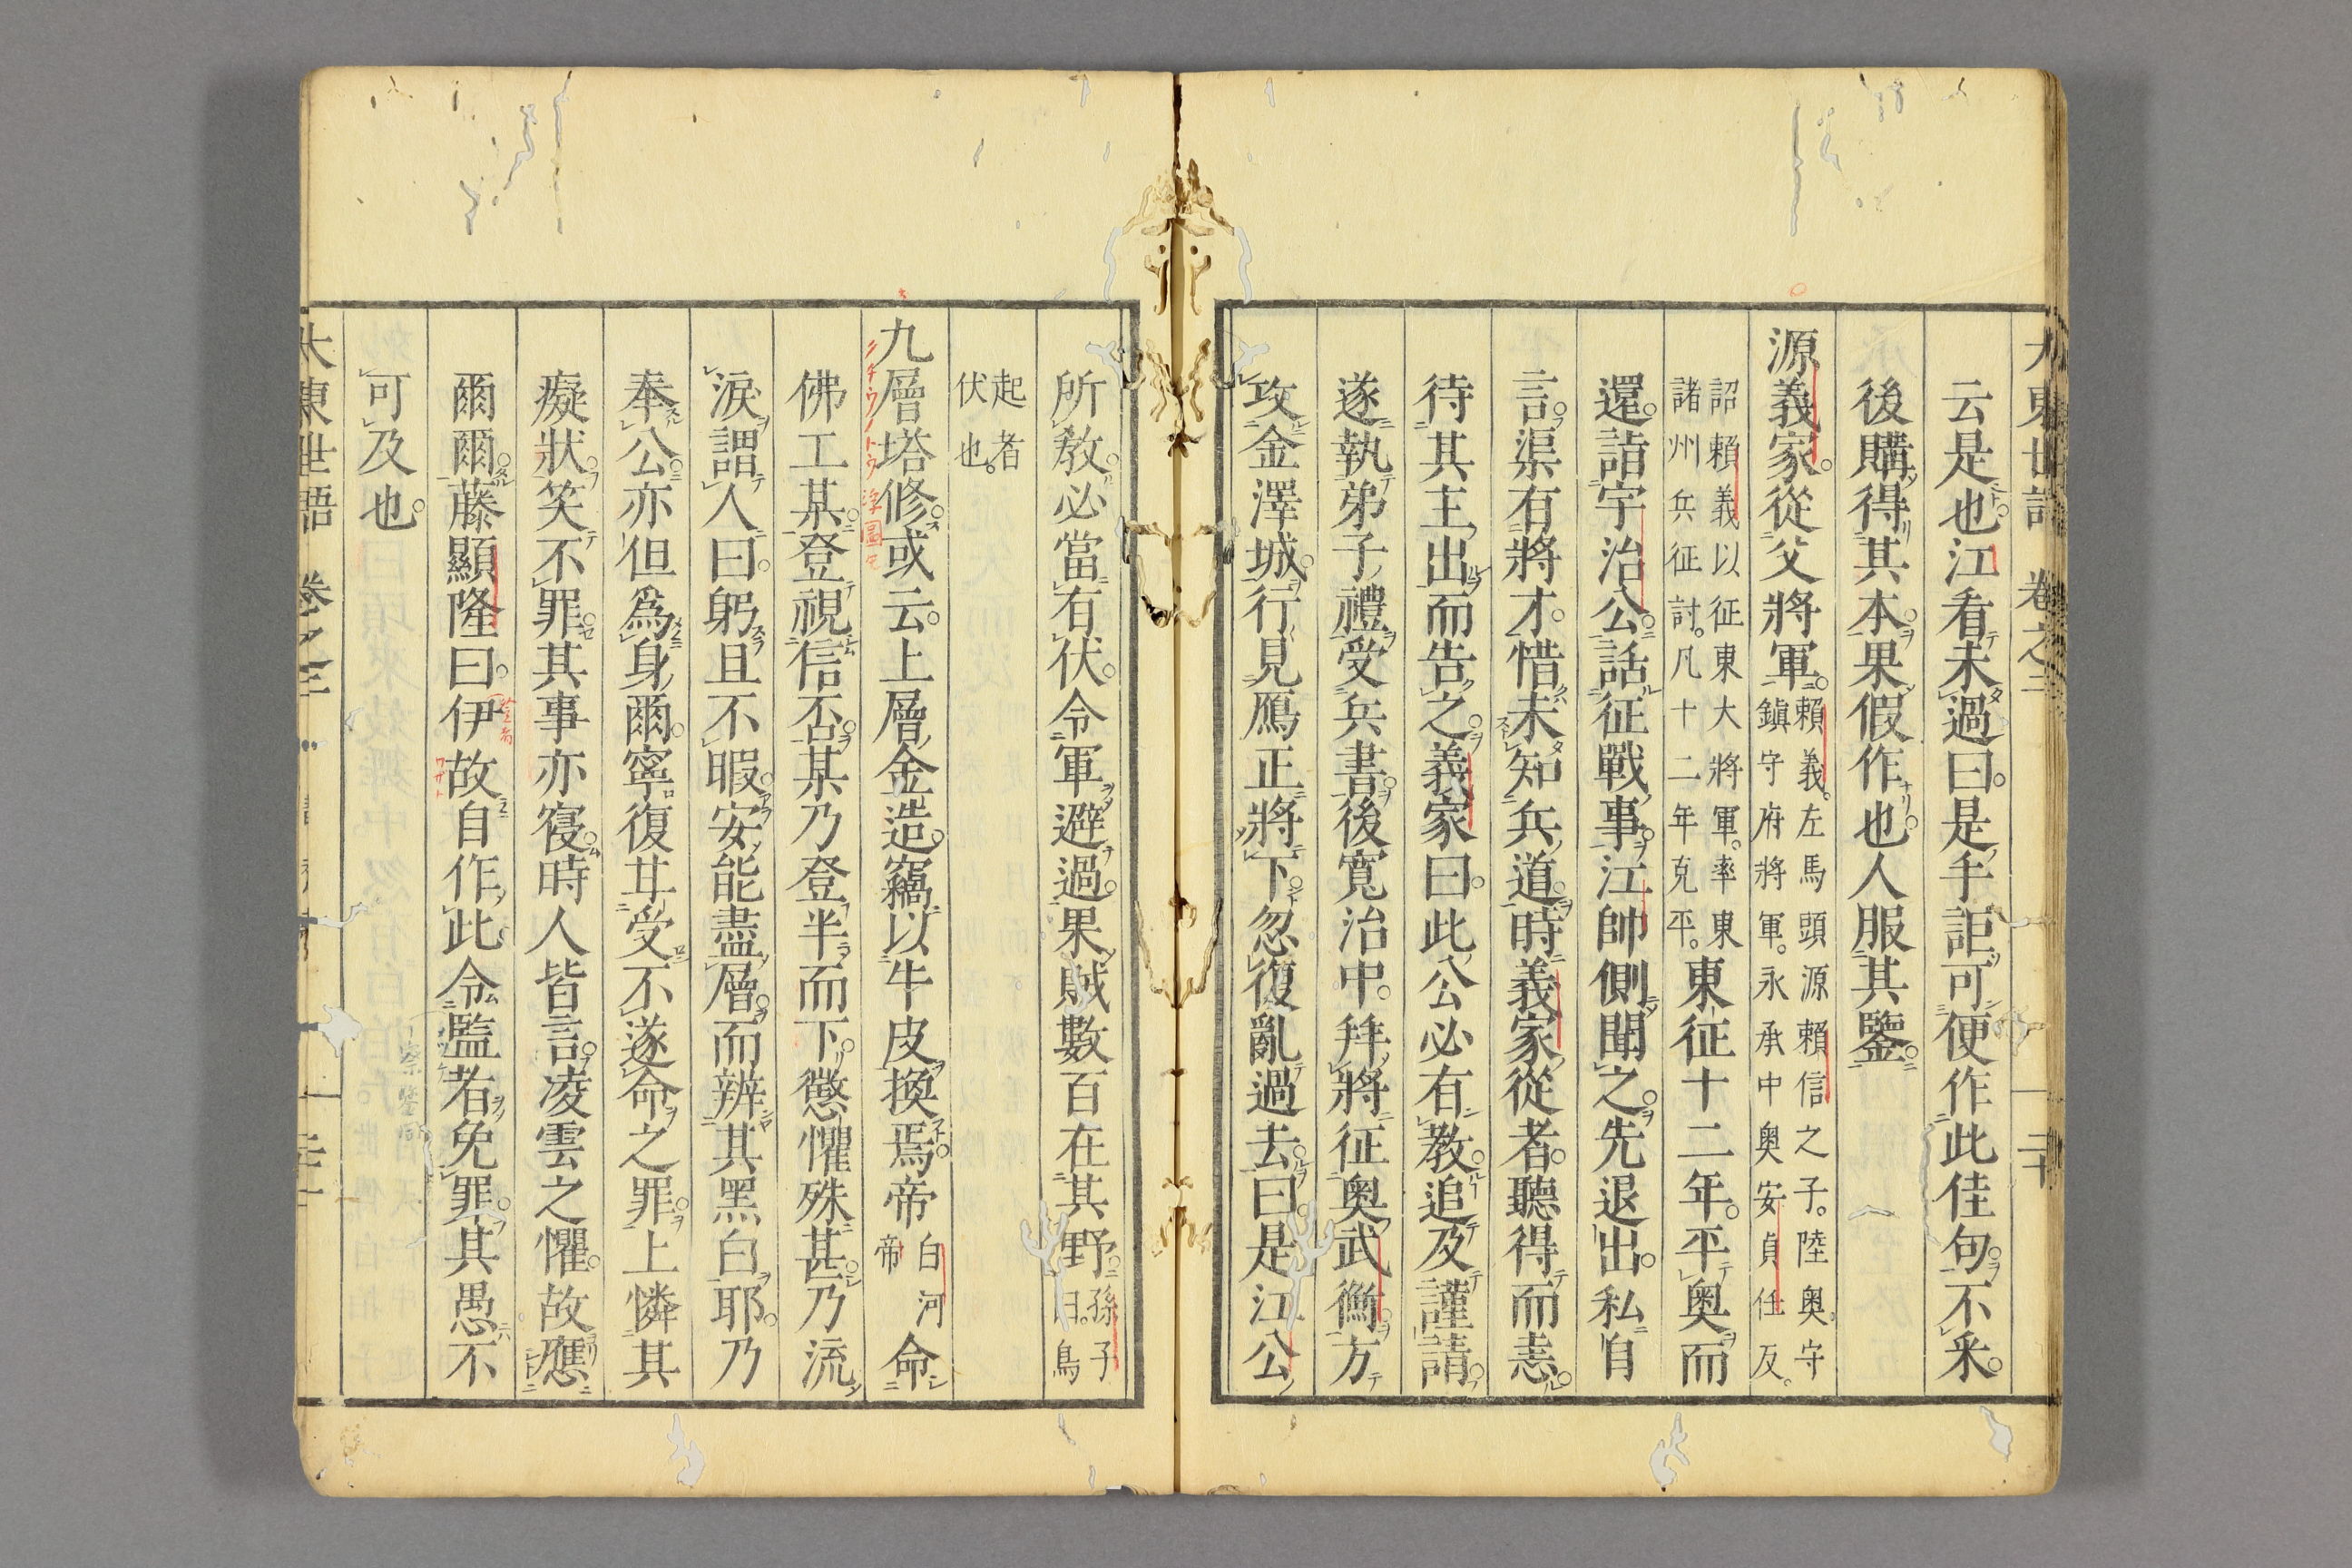 大東世語 卷之二 二十
云是也江看未過曰是手詎可便作此佳句不釆
後購得其本果假作也人服其鑒
源義家從父將軍賴義左馬頭源賴信之子陸奥守鎭守府將軍永承中奥安貞任反
詔賴義以征東大將軍率東諸州兵征討凡十二年克平東征十二年平奥而
還詣宇治公話征戰事江帥側聞之先退出私自
言渠有將才惜未知兵道時義家從者聽得而恚
待其主出而告之義家曰此公必有教追及謹請
遂執弟子禮受兵書後寬治中拜將征奥武衡方
攻金澤城行見鴈正將下忽復亂過去曰是江公
所教必當有伏令軍避過果賊數百在其野孫子曰鳥
起者伏也
九層塔修或云上層金造竊以牛皮換焉帝白河帝命
佛工某登視信否某乃登半而下懲懼殊甚乃流
淚謂人曰躬且不暇安能盡層而辨其黑白耶乃
奉公亦但爲身爾寧復廿受不遂命之罪上憐其
癡狀笑不罪其事亦寑時人皆言凌雲之懼故應
爾爾藤顯隆曰伊故自作此令監者免罪其愚不
可及也
大東世語 卷之二